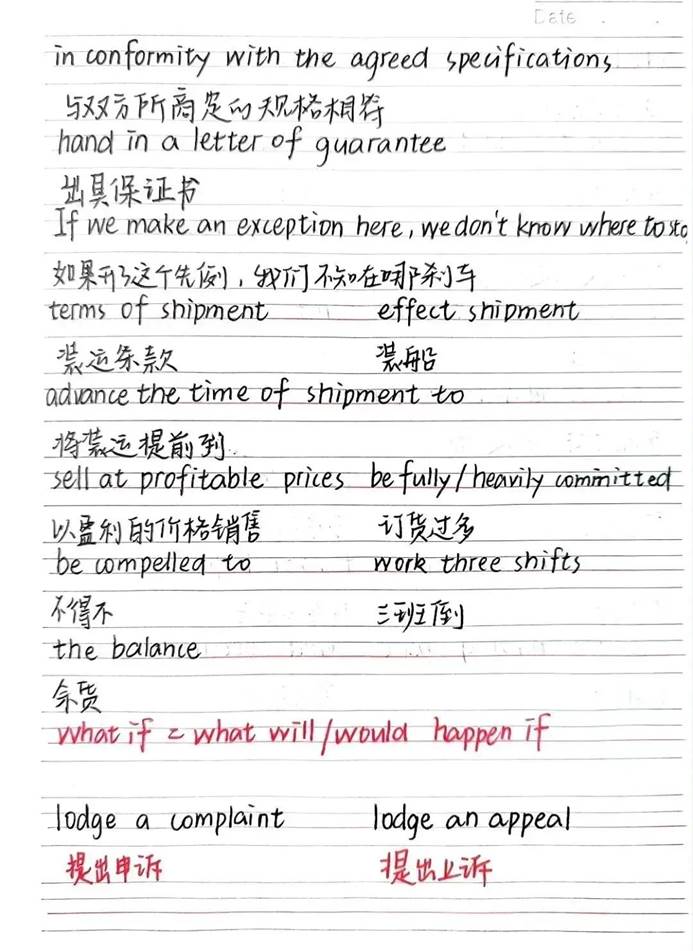 Date . .
in conformity with the agreed specifications
与双方所商定的规格相符
hand in a letter of guarantee
出具保证书
If we make an exception here, we don't know where to sto
如果开了这个先例，我们不知在哪刹车
terms of shipment effect shipment
装运条款 装船
advance the time of shipment to
将装运提前到
sell at profitable prices be fully/heavily committed
以盈利的价格销售 订货过多
be compelled to work three shifts
不得不 三班倒
the balance
余货
what if = what will/would happen if
lodge a complaint lodge an appeal
提出申诉 提出上诉